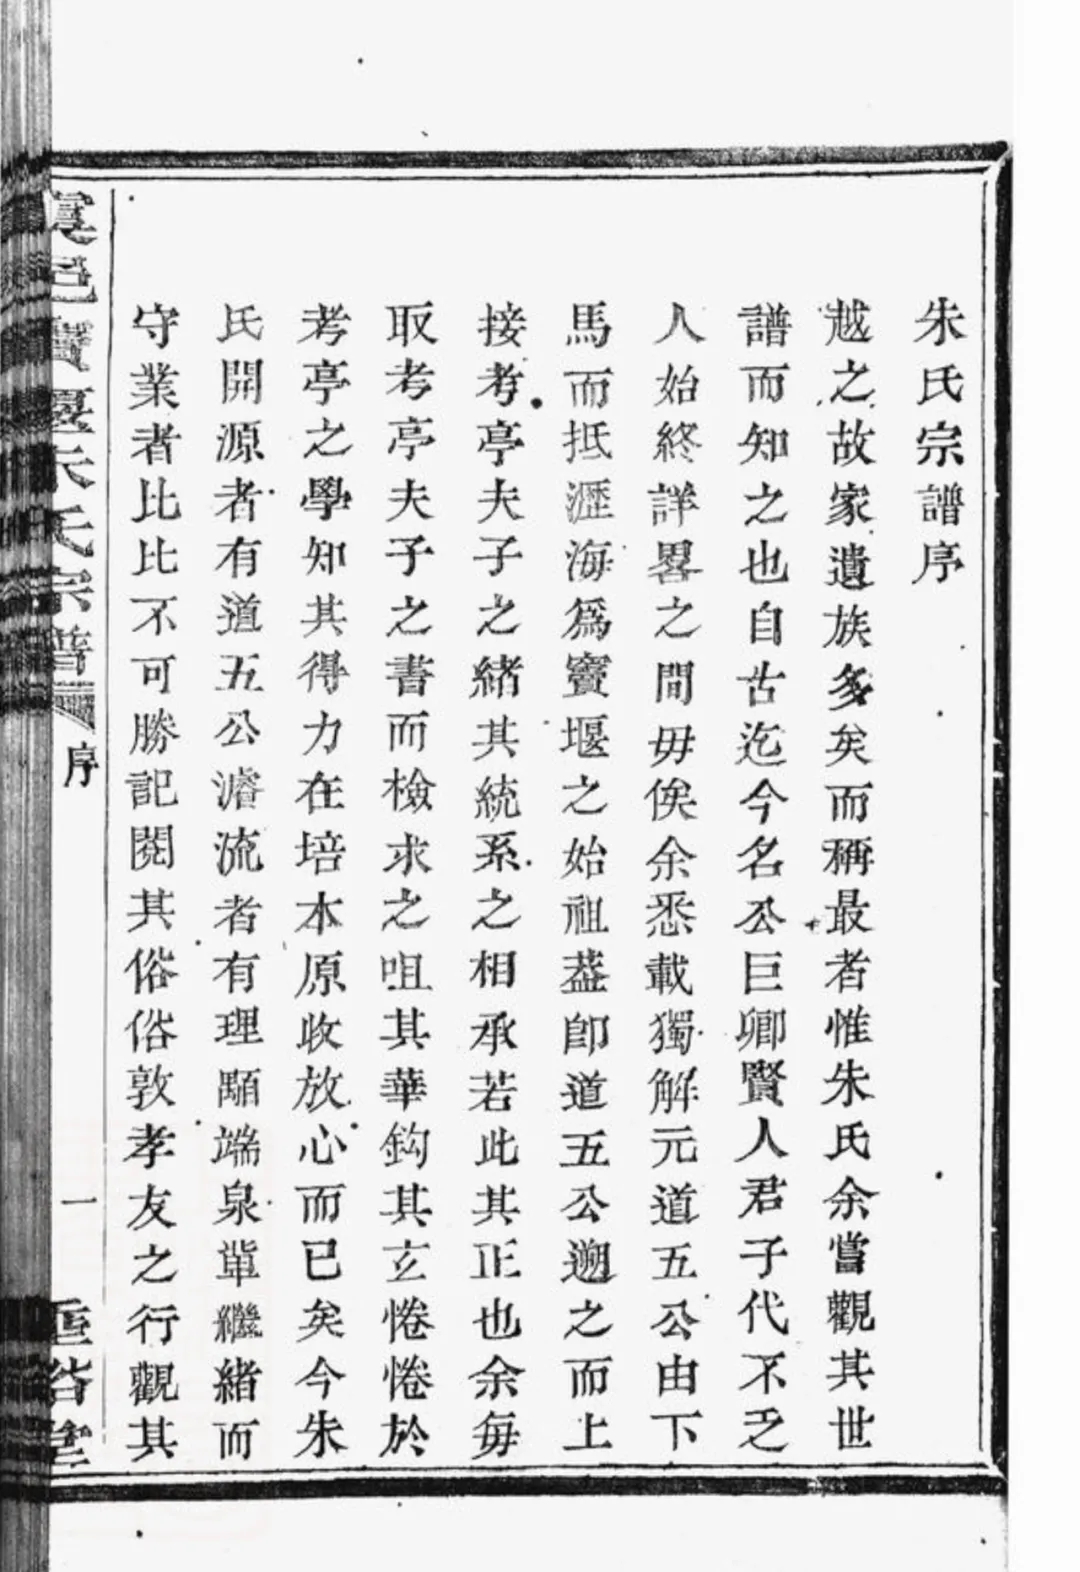 朱氏宗譜序
越之故家遺族多矣而稱最者惟朱氏余嘗觀其世
譜而知之也自古迄今名公巨卿賢人君子代不乏
人始終詳畧之間毋俟余悉載獨解元道五公由下
馬而抵瀝海爲竇堰之始祖葢卽道五公遡之而上
接考亭夫子之緒其統系之相承若此其正也余每
取考亭夫子之書而檢求之咀其華鈎其玄惓惓於
考亭之學知其得力在培本原收放心而已矣今朱
氏開源者有道五公濬流者有理顒端泉單繼緒而
守業者比比不可勝記閱其俗俗敦孝友之行觀其
虞邑竇堰朱氏宗譜
序
一